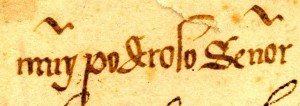 muy poderoso Señor